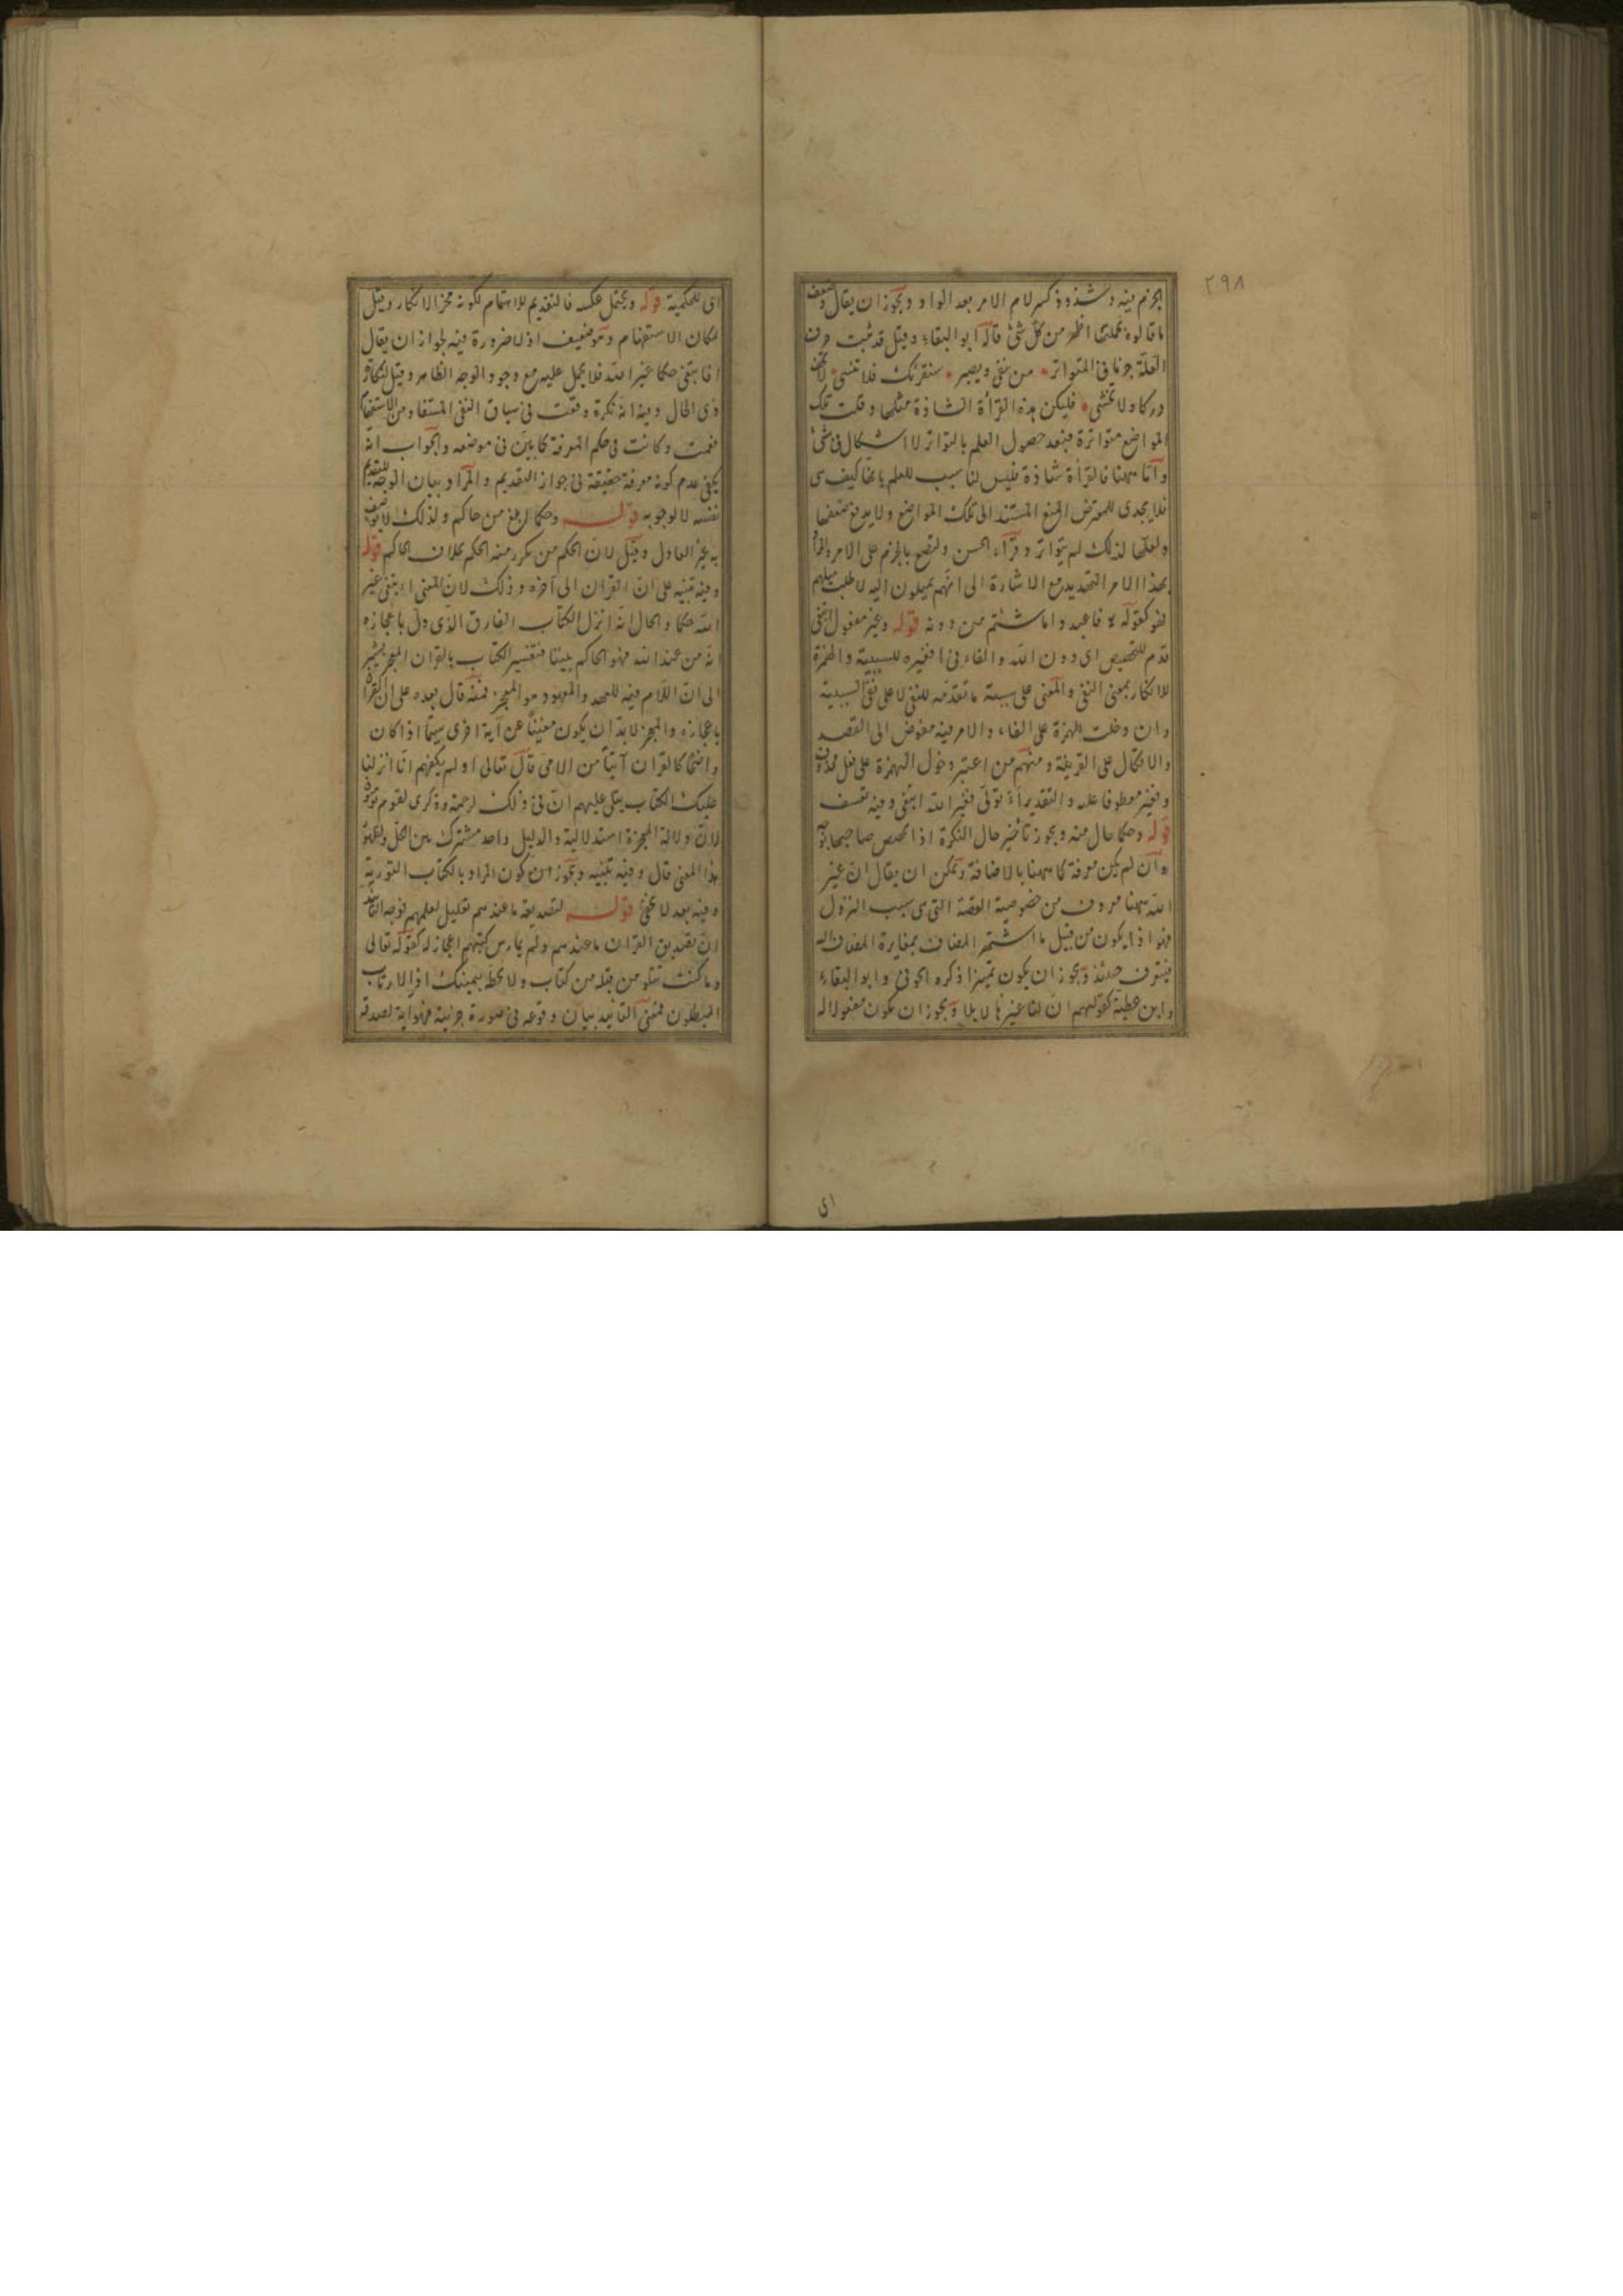 ٢٩٨
الجزم فيه وشذوذ كسر لام الامر بعد الواو ويجوز ان يقال وضعف
ما قالوه بجملتها اظهر من كل شئ قاله ابو البقاء وقيل قد ثبت حرف
العلة جزما فى المتواتر من يتقى ويصبر سنقرئك فلا تنسى لا تخف
دركا ولا تخشى فليكن هذه القرأة الشاذة مثلها وقلت تلك
المواضع متواترة فبعد حصول العلم بالتواتر لا اشكال فى شئ
وأما ههنا فالقرأة شاذة فليس لنا سبب للعلم بانها كيف هى
فلا يجدى للمعترض المنع المستند الى تلك المواضع ولا يدفع ضعفها
ولعلها لذلك لم يتواتر وقرأ الحسن ولتصغ بالجزم على الامر والمراد
بهذا الامر التهديد مع الاشارة الى انهم يميلون اليه لا طلب ميلهم
فهو كقوله فاعبدوا ما شئتم من دونه قوله وغير مفعول ابتغى
قدم للتخصيص اى دون الله والفاء فى افغير للسببية والهمزة
للانكار بمعنى النفى والمعنى على سببية ما تقدمه للنفى لا على نفى السببية
وان دخلت الهمزة على الفاء والامر فيه مفوض الى القصد
والاتكال على القرينة ومنهم من اعتبر دخول الهمزة على فعل محذوف
وفغير معطوفا عليه والتقدير أاتولى فغير الله ابتغى وفيه تعسف
قوله وحكما حال منه ويجوز تأخير حال النكرة اذا تخصص صاحبها بوجه
وان لم يكن معرفة كما ههنا بالاضافة ويمكن ان يقال ان غير
الله ههنا معروف من خصوصية القصة التى هى سبب النزول
فهو اذا يكون من قبيل ما اشتهر المضاف بمغايرة المضاف اليه
فيتعرف حينئذ ويجوز ان يكون تميزا ذكره الحوفى وابو البقاء
وابن عطية كقولهم ان لنا غيرها لابلا ويجوز ان يكون مفعولا له
اى
اى للحكمية قوله ويحتمل عكسه فالتقديم للاهتمام لكونه محز الانكار وقيل
لمكان الاستفهام وهو ضعيف اذ لا ضرورة فيه لجواز ان يقال
افابتغى حكما غير الله فلا يحمل عليه مع وجود الوجه الظاهر وقيل لنكارة
ذى الحال وفيه انه نكرة وقعت فى سياق النفى المستفاد من الاستفهام
فعمت وكانت فى حكم المعرفة كما بين فى موضعه والجواب انه
يكفى عدم كونه معرفة حقيقة فى جواز التقديم والمراد بيان الوجه للتقديم
نفسه لا لوجوبه قوله وحكما ابلغ من حاكم ولذلك لا يوصف
به غير العادل وقيل لان الحكم من تكرر منه الحكم بخلاف الحاكم قوله
وفيه تنبيه على ان القرآن الى آخره وذلك لان المعنى أابتغى غير
الله حكما والحال انه انزل الكتاب الفارق الذى دل باعجازه
انه من عند الله فهو الحاكم بيننا فتفسير الكتاب بالقرآن المعجز يشير
الى ان اللام فيه للعهد والمعهود هو المعجز فمنه قال بعده على ان القرآن
باعجازه والمعجز لا بد ان يكون مغنيا عن آية اخرى سيما اذا كان
واضحا كالقرآن آتيا من الامى قال تعالى اولم يكفهم انا انزلنا
عليك الكتاب يتلى عليهم ان فى ذلك لرحمة وذكرى لقوم يؤمنون
لان دلالة المعجزة استدلالية والدليل واحد مشترك بين الكل
هذا المعنى قال وفيه تنبيه ويجوز ان يكون المراد بالكتاب التورية
وفيه بعد لا يخفى قوله لتصديقه ما عندهم تعليل لعلمهم فوجه التأييد
ان تصديق القرآن ما عندهم ولم يمارس كتبهم اعجاز له كقوله تعالى
وما كنت تتلو من قبله من كتاب ولا تخطه بيمينك اذا لارتاب
المبطلون فمعنى التأييد بيان وقوعه فى صورة جزئية